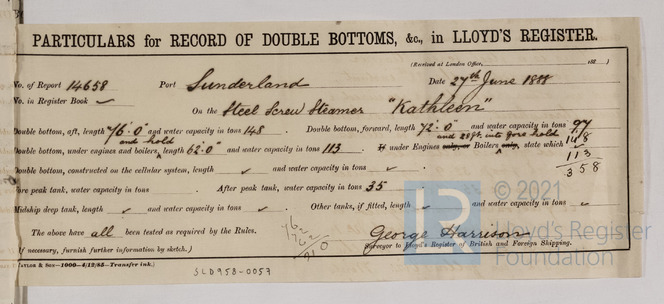 PARTICULARS for RECORD OF DOUBLE BOTTOMS, &c., in LLOYD'S REGISTER.
(Received at London Office, 188 )
No. of Report 14658 Port Sunderland Date 27th June 1888
No. in Register Book ✓
On the Steel Screw Steamer "Kathleen"
Double bottom, aft, length 76'.0" and water capacity in tons 148. Double bottom, forward, length 72'.0" and water capacity in tons 97
and hold and 28ft into fore hold 148
Double bottom, under engines and boilers, length 62'.0" and water capacity in tons 113. If under Engines only, or Boilers only, state which 113
358
Double bottom, constructed on the cellular system, length ✓ and water capacity in tons ✓
Fore peak tank, water capacity in tons . After peak tank, water capacity in tons 35
Midship deep tank, length ✓ and water capacity in tons ✓. Other tanks, if fitted, length ✓ and water capacity in tons ✓
The above have all been tested as required by the Rules. George Harrison
Surveyor to Lloyd's Register of British and Foreign Shipping.
(If necessary, furnish further information by sketch.)
TAYLOR & SON—1000—4/12/85—Transfer ink.]
SLD958-0057
© 2021
LR
Lloyd's Register
Foundation